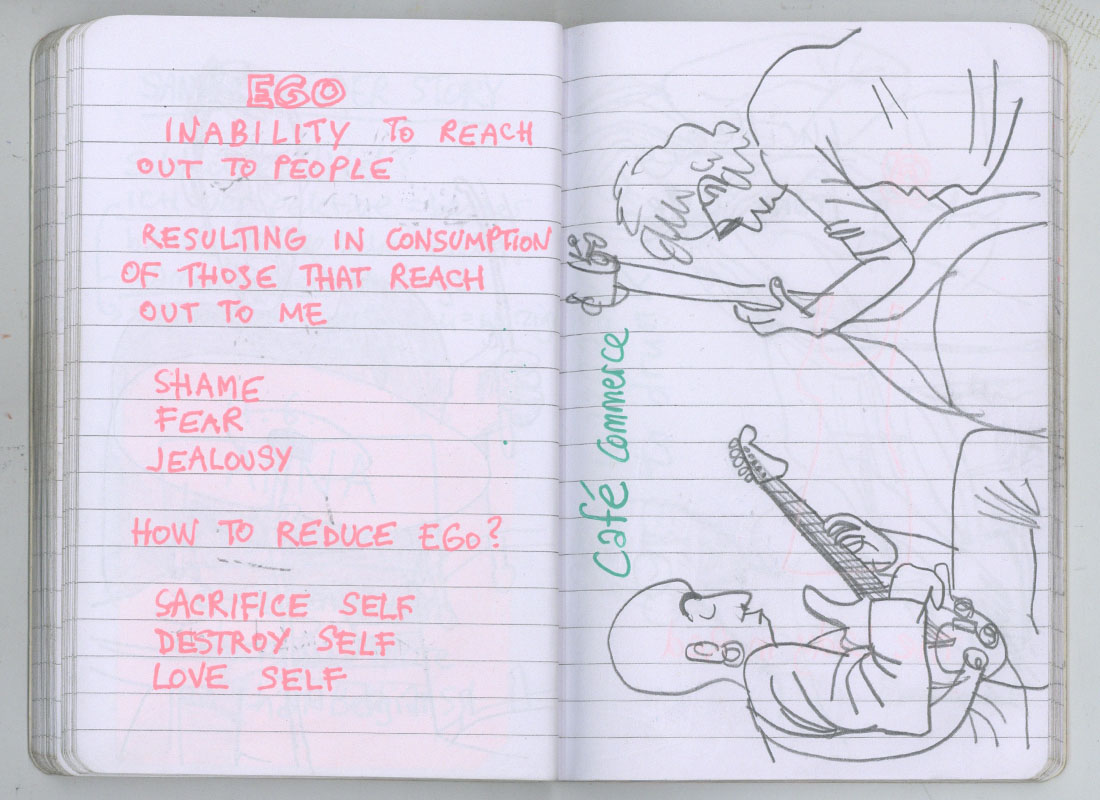 EGO
INABILITY TO REACH
OUT TO PEOPLE
RESULTING IN CONSUMPTION
OF THOSE THAT REACH
OUT TO ME
SHAME
FEAR
JEALOUSY
HOW TO REDUCE EGO?
SACRIFICE SELF
DESTROY SELF
LOVE SELF
Café commerce